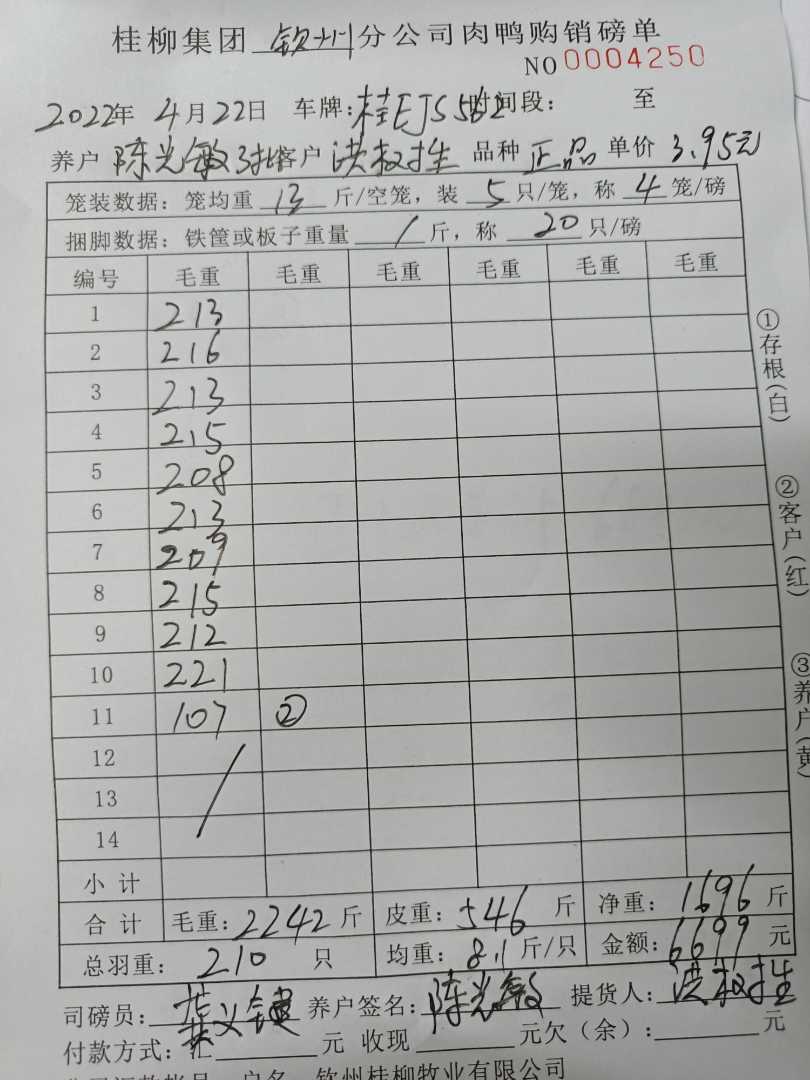 桂柳集团 钦州 分公司肉鸭购销磅单
NO 0004250
2022年 4月22日 车牌:桂EJS562 时间段: 至
养户 陈光敏3批 客户 洪权生 品种 正品 单价 3.95元
笼装数据: 笼均重 13 斤/空笼, 装 5 只/笼, 称 4 笼/磅
捆脚数据: 铁筐或板子重量 / 斤, 称 20 只/磅
编号 毛重 毛重 毛重 毛重 毛重 毛重
1 213
2 216
3 213
4 215
5 208
6 213
7 209
8 215
9 212
10 221
11 107 ②
12
13
14
小计
合计 毛重: 2242 斤 皮重: 546 斤 净重: 1696 斤
总羽重: 210 只 均重: 8.1 斤/只 金额: 6699 元
司磅员: 义键 养户签名: 陈光敏 提货人: 洪权生
付款方式: 汇 元 收现 元欠(余): 元
户名 钦州桂柳牧业有限公司
①存根(白)
②客户(红)
③养户(黄